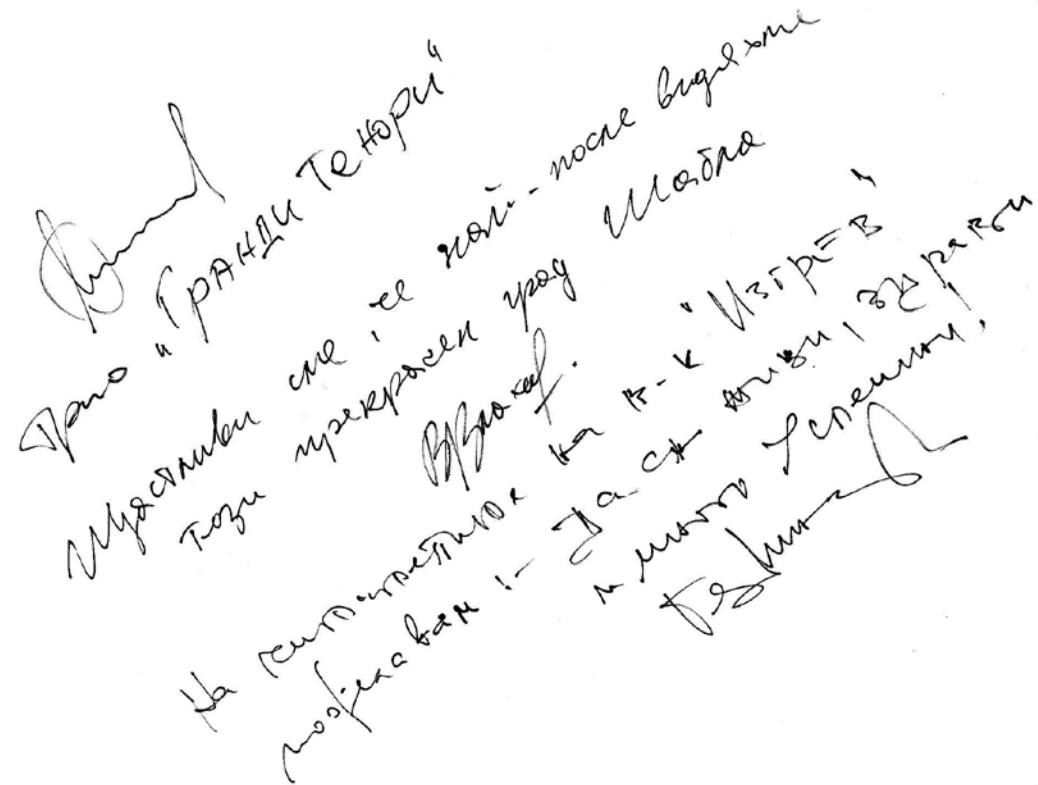 Трио "ГРАНДИ ТЕНОРИ"
Щастливи сме, че най-после видяхме
този прекрасен град Шабла
На на в-к "Изгрев"
пожелавам! - Да са живи, здрави
и много успешни!